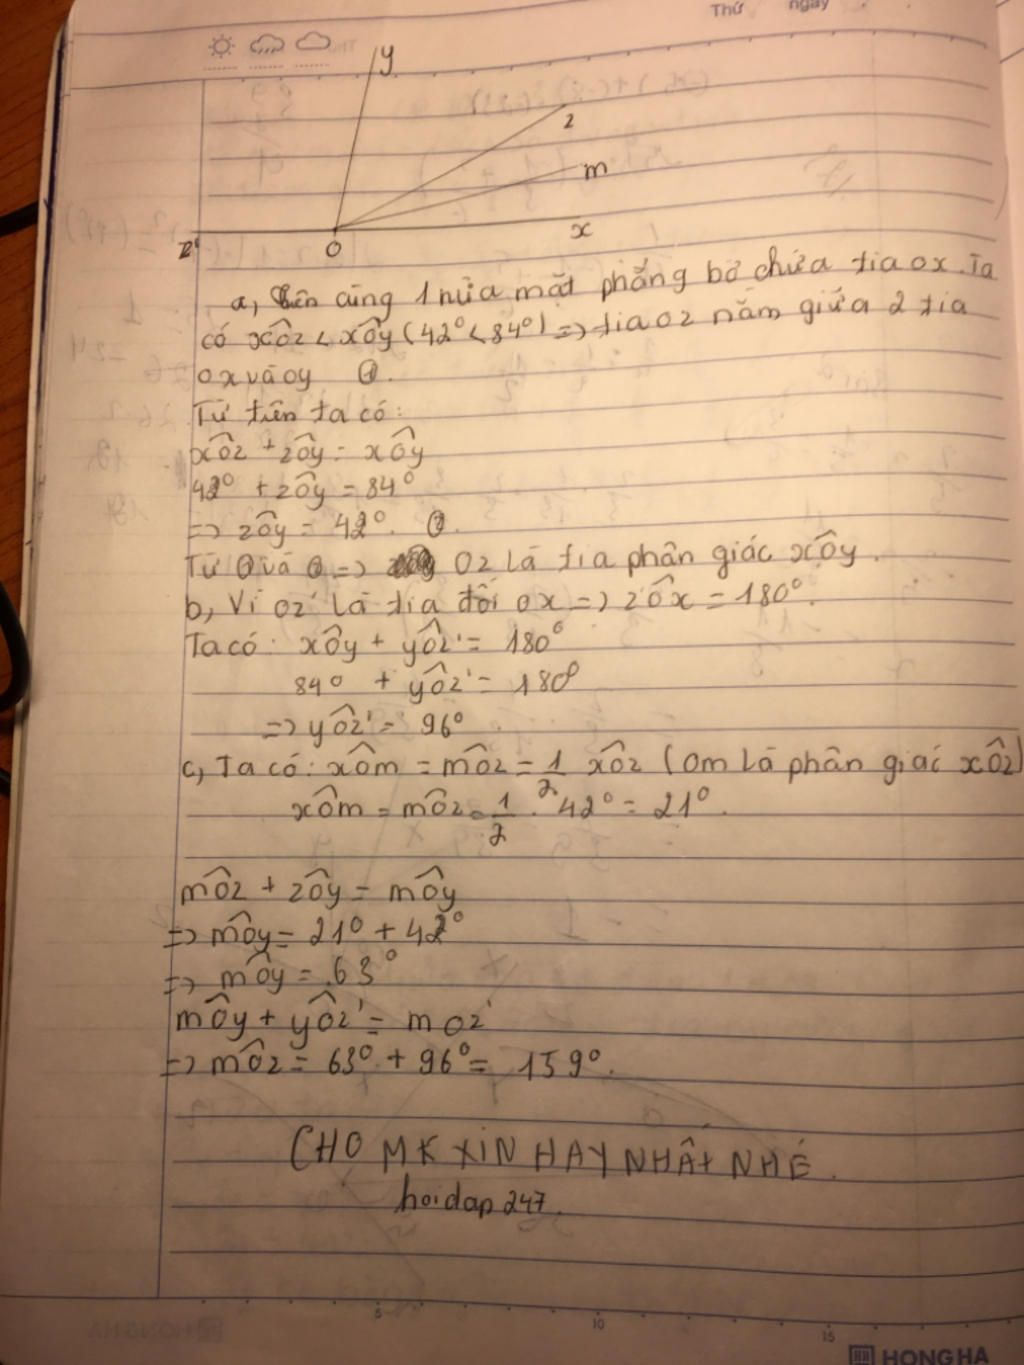 Thứ ngày
y
z
m
x
O
z'
a, Trên cùng 1 nửa mặt phẳng bờ chứa tia ox. Ta
có xÔz < xÔy (42° < 84°) => tia oz nằm giữa 2 tia
ox và oy ①.
Từ trên ta có:
xÔz + zÔy = xÔy
42° + zÔy = 84°
=> zÔy = 42°. ②.
Từ ① và ② => Oz là tia phân giác xÔy.
b, Vì oz' là tia đối ox => zÔx = 180°.
Ta có: xÔy + yÔz' = 180°
84° + yÔz' = 180°
=> yÔz' = 96°
c, Ta có: xÔm = mÔz = 1/2 xÔz (Om là phân giác xÔz)
xÔm = mÔz = 1/2 . 42° = 21°.
mÔz + zÔy = mÔy
=> mÔy = 21° + 42°
=> mÔy = 63°
mÔy + yÔz' = moz'
=> mÔz = 63° + 96° = 159°.
CHO MK XIN HAY NHẤT NHÉ.
hoidap247.
5 10 15
HONG HA